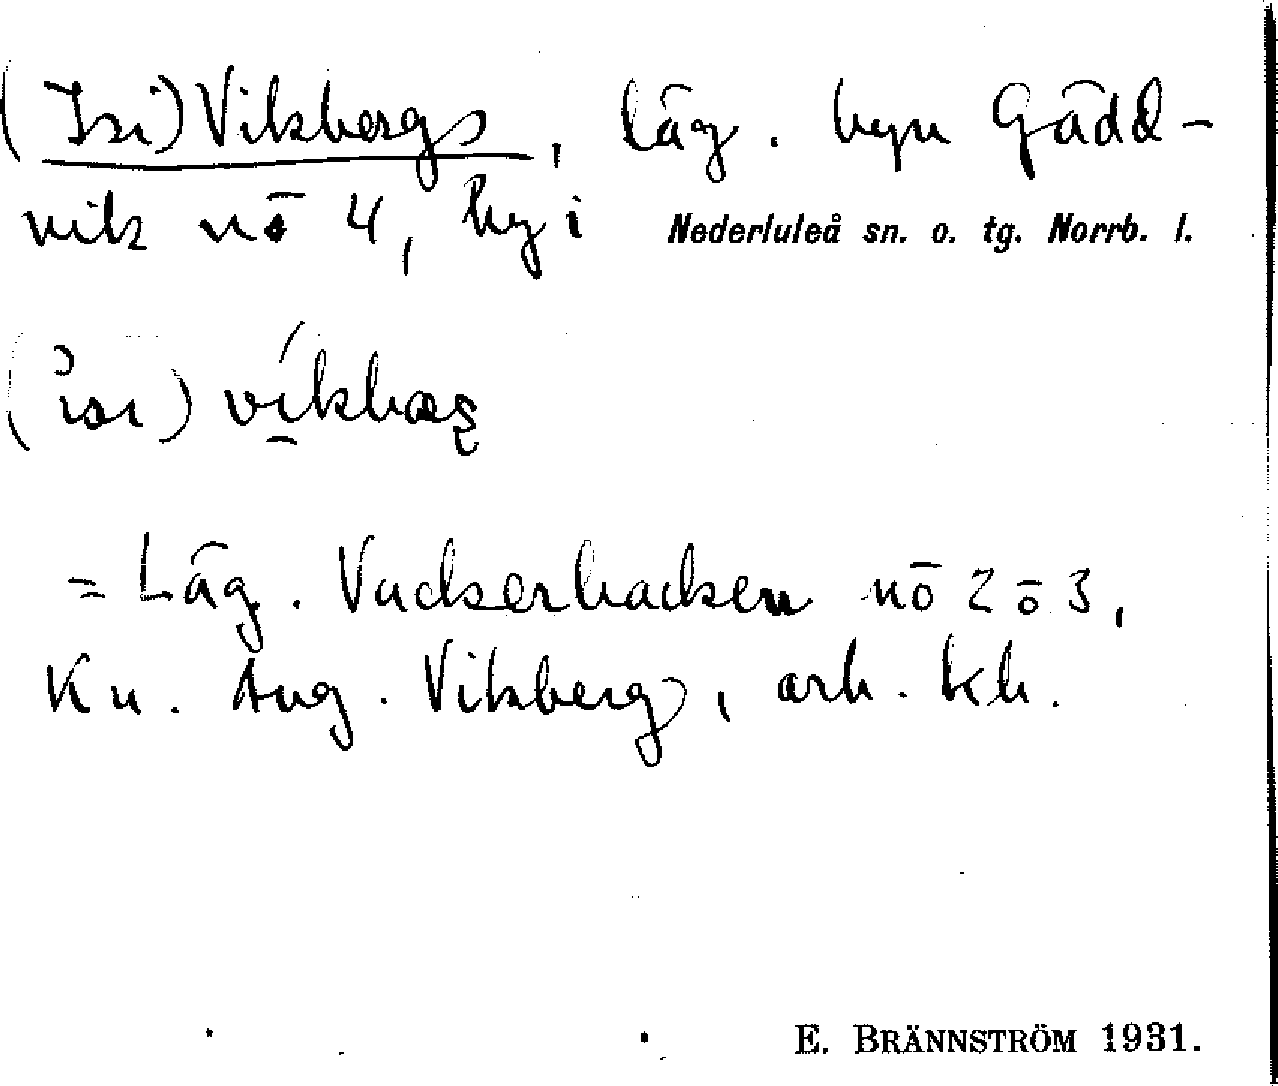 (Isi) Vikbergs, läg. byn Gädd-
vik nö 4, by i Nederluleå sn. o. tg. Norrb. l.
víkbæṣ
= Läg. Vackerbacken nö 2 ō 3,
Ku. Aug. Vikberg, arb. Kb.
E. BRÄNNSTRÖM 1931.